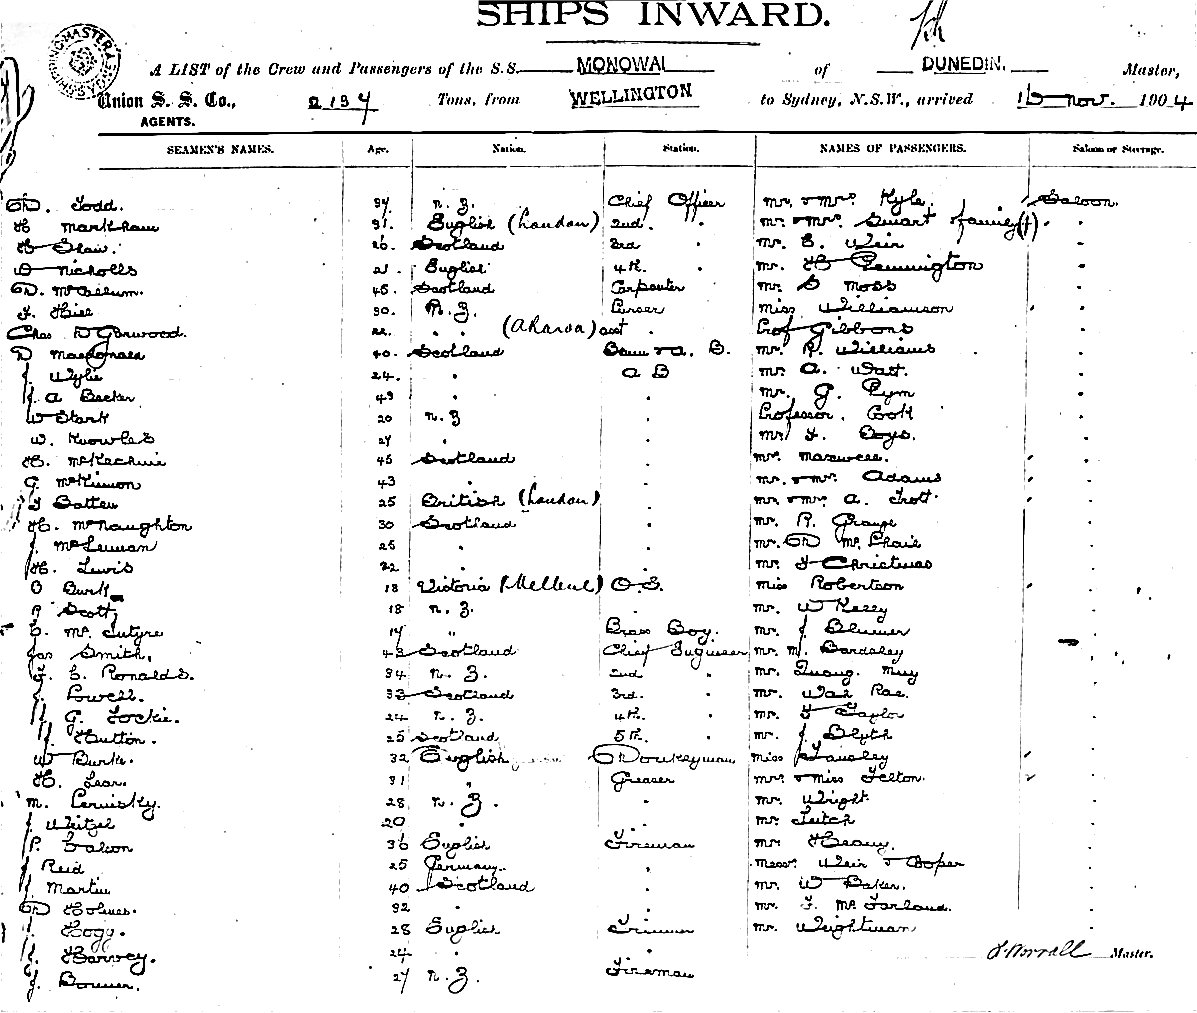 SHIPS INWARD.
A LIST of the Crew and Passengers of the S.S. MONOWAI of DUNEDIN. Master,
Union S. S. Co., 2137 Tons, from WELLINGTON to Sydney, N.S.W., arrived 16 Nov. 1904
AGENTS.
SEAMEN'S NAMES. Age. Nation. Station. NAMES OF PASSENGERS. Saloon or Steerage.
D. Todd. 37 N. Z. Chief Officer Mr. & Mrs. Kyle. Saloon.
H Markham 31. English (London) 2nd. Mr. & Mrs. Smart family
26. Scotland 3rd Mr. E. Weir
D Nicholls 21. English 4th. Mr. H Pennington
D. McCallum. 45. Scotland Carpenter Mr. S Moss
J. Hill 30. N. Z. Purser Miss Williamson
Chas D Garwood. 22. (Akaroa) asst Prof Gibbons
D Macdonald 40. Scotland A. B. Mr. R. Williams
J. Wylie 24. A B Mr A. Watt.
J. A Becker 43 Mr. G. Pym
W Stark 20 N. Z Professor. Cook
W. Knowles 27 Mr J. Boys.
H. McKechnie 45 Scotland Mr. Maxwell.
G. McKinnon 43 Mr. & Mrs. Adams
J Batten 25 British (London) Mr. & Mrs. A. Trott
H. McNaughton 30 Scotland Mr. R. Grange
J. McLennan 25 Mr. D McPhail
H. Lewis 22 Mr. J Christmas
O Burk 18 Victoria (Melbne) O.S. Miss Robertson
R Scott 18 N. Z. Mr. W Kelly
E. McIntyre 17 Brass Boy. Mr. J Blumer
Jas Smith, 43 Scotland Chief Engineer Mr. M. Bardsley
J. E. Ronalds. 34 N. Z. 2nd Mr. Quong. Muy
J. Powell. 33 Scotland 3rd. Mr. Wah Pae.
J. G. Lockie. 24 N. Z. 4th. Mr. J Taylor
J. Hutton. 25 Scotland 5th. Mr. J Blyth
W Burke. 32 English Donkeyman Miss Tansley
H. Lean. 31 Greaser Mrs & Miss Felton.
M. 28 N. Z. Mr. Wright
J. Weitzel 20 Mr. Leitch
P. 36 English Fireman Mr. Heany.
J Reid 25 Germany. Messrs Weir & Cooper
J. Martin 40 Scotland Mr. W Baker.
D Holmes. 32 Mr. J. McFarland.
J. Hogg. 28 English Trimmer Mr. Weightman
J. Harvey. 24
J. Bonner. 27 N. Z. Fireman
J. Worrall Master.